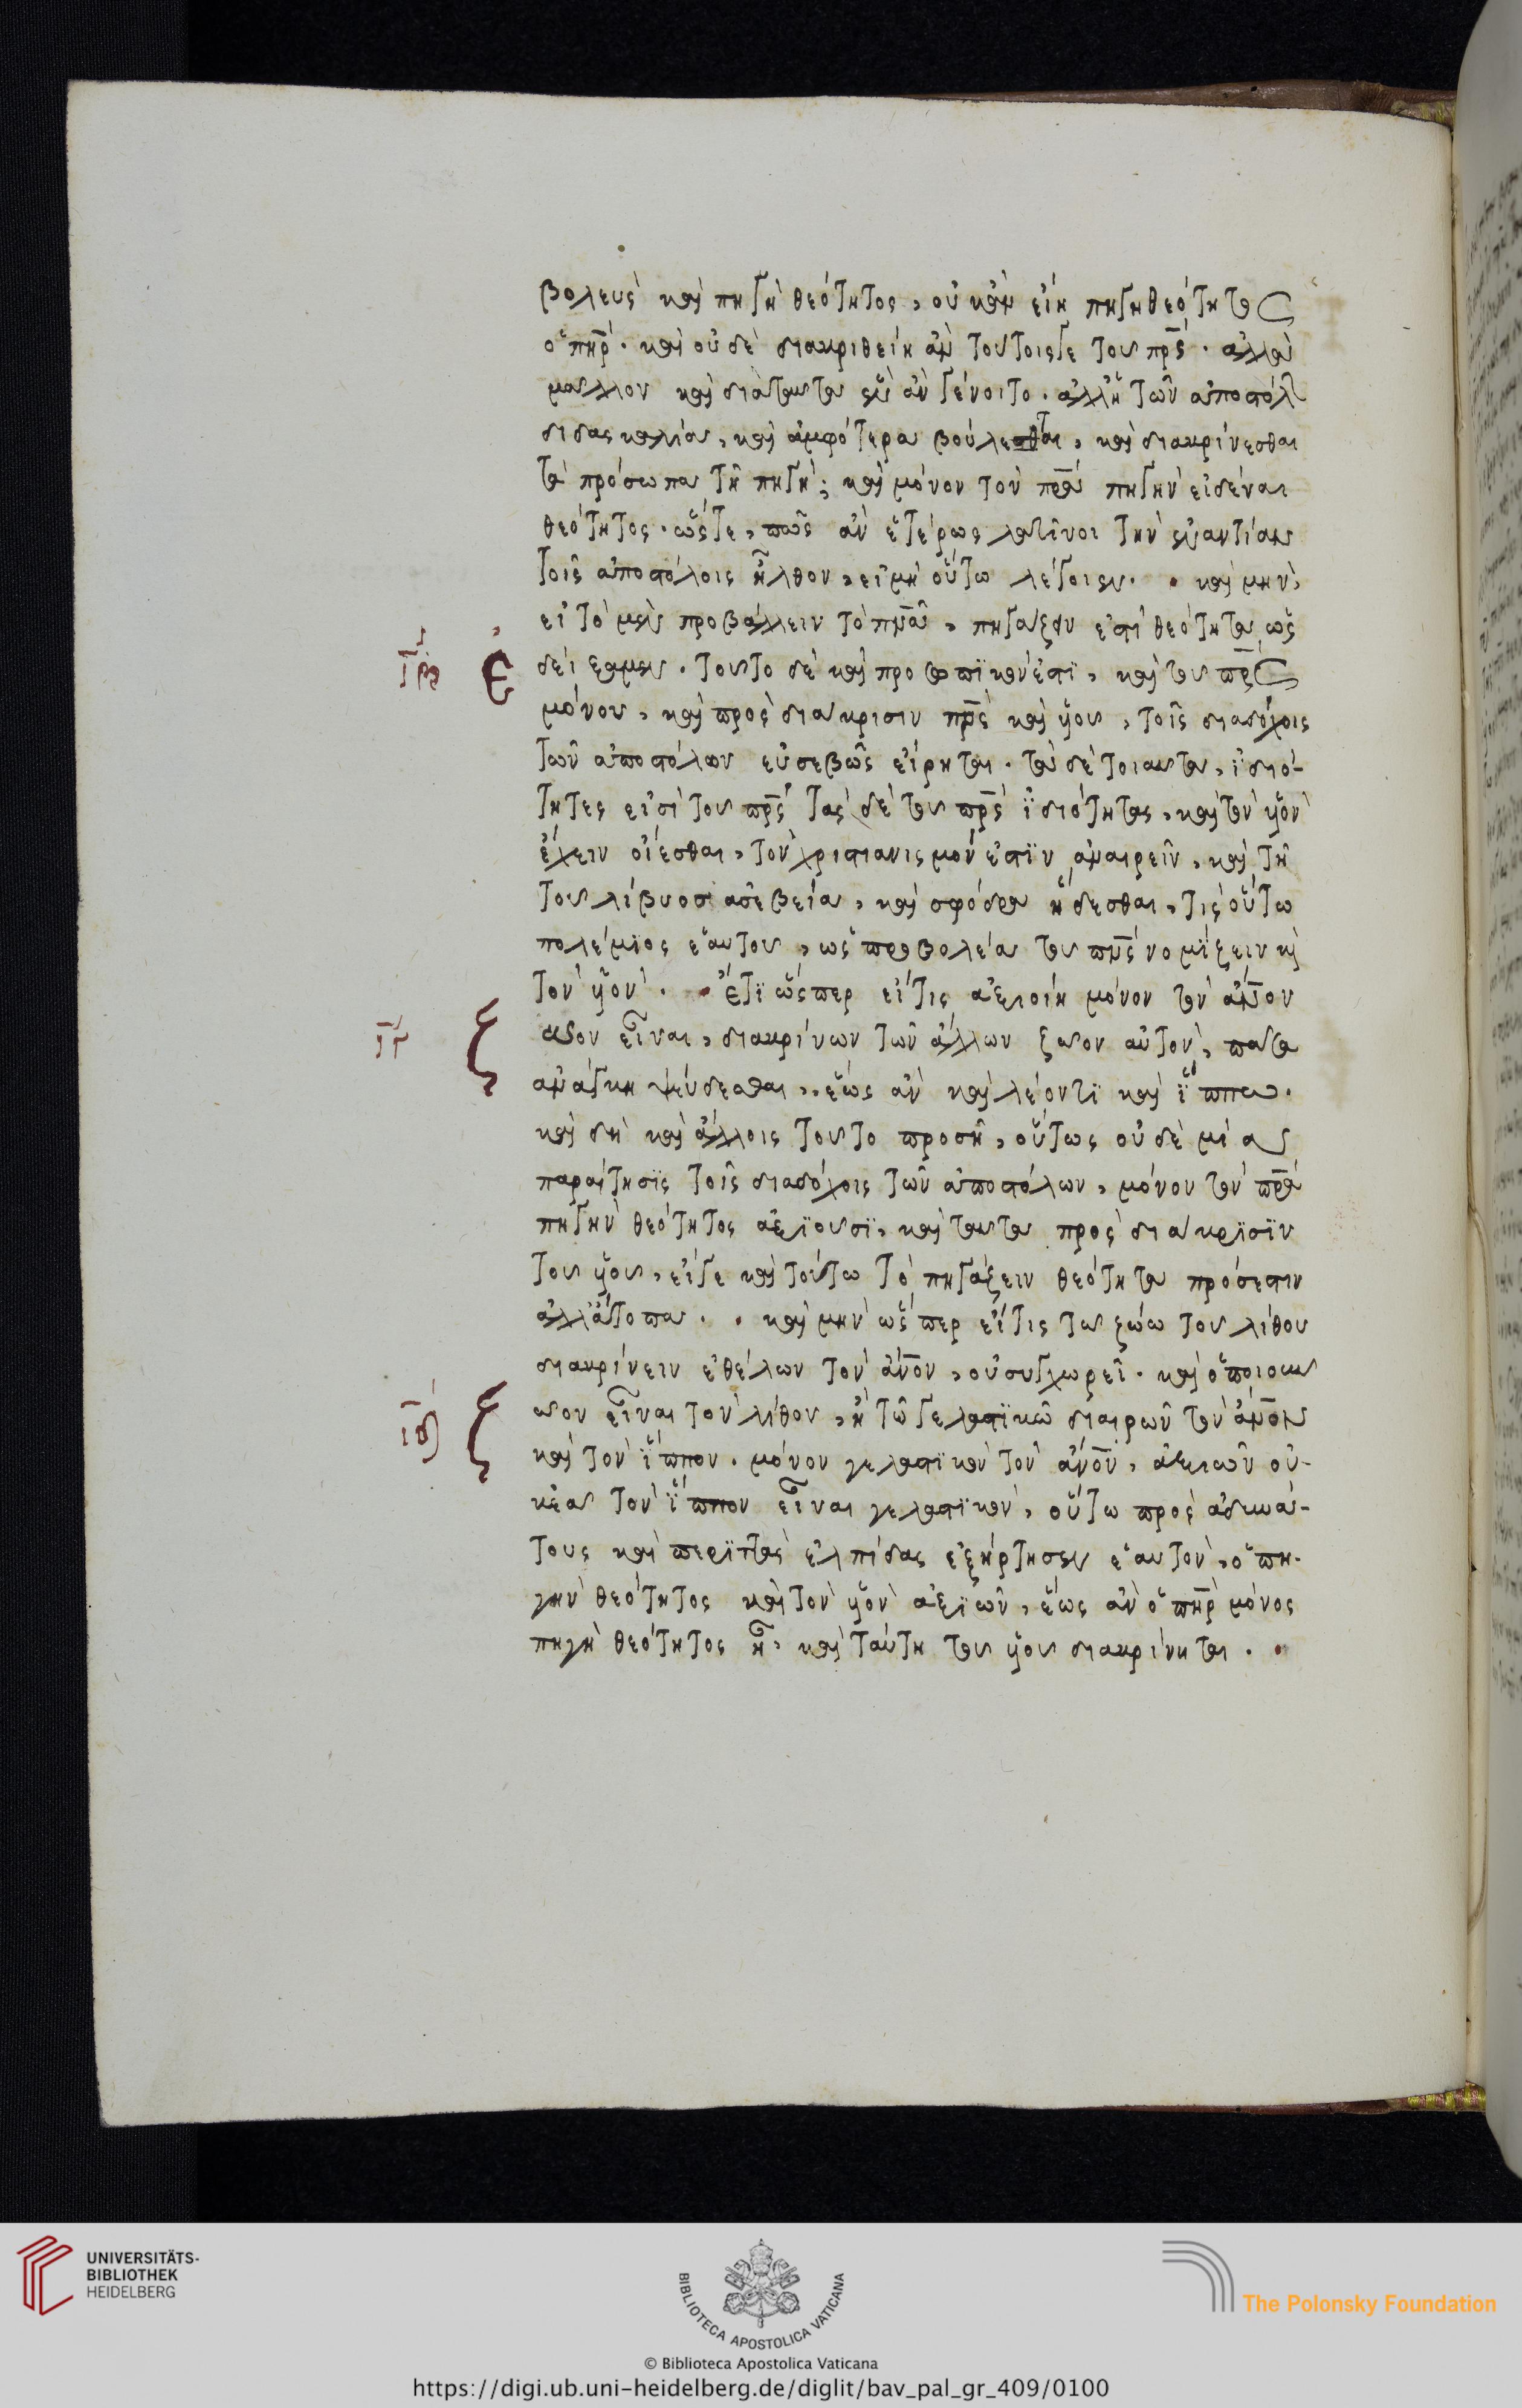 βολεὺς καὶ πηγὴ θεότητος, οὐκ ἂν εἴη πηγὴ θεότητος
ὁ πηρ̅. καὶ οὐδὲ διακριθείη ἂν τούτοις γε τοῦ πρ̅ς. ἀλλὰ
μᾶλλον καὶ διὰ ταῦτα ἓν ἂν γένοιτο. ἀλλ' ἡ τῶν ἀποστόλ
διδασκαλία, καὶ ἀμφότερα βούλεται, καὶ διακρίνεσθαι
τὰ πρόσωπα τῆ πηγῆ; καὶ μόνον τὸν πρ̅α πηγὴν εἰδέναι
θεότητος. ὥστε, πῶς ἂν ἑτέρως λατῖνοι τὴν ἐναντίαν
τοῖς ἀποστόλοις ἦλθον, εἰ μὴ οὕτω λέγοιεν. καὶ μὴν,
εἰ τὸ μὲν προβάλλειν τὸ πν̅α, πηγάζειν ἐστὶ θεότητα ὡς
ιβ ἐδείξαμεν. τοῦτο δὲ καὶ προσωπϊκόν ἐστϊ, καὶ τοῦ πρ̅ς
μόνου, καὶ πρὸς διάκρισιν πρ̅ς καὶ υἱοῦ, τοῖς διαδόχοις
τῶν ἀποστόλων εὐσεβῶς εἴρηται. τὰ δὲ τοιαῦτα, ἰδιό-
τητες εἰσὶ τοῦ πρ̅ς τὰς δὲ τοῦ πρ̅ς ἰδιότητας, καὶ τὸν υἱὸν
ἔχειν οἴεσθαι, τὸν χριστιανισμόν ἐστϊν ἀναιρεῖν, καὶ τῆ
τοῦ λίβυος ἀσεβεία, καὶ σφόδρα ἥδεσθαι, τίς οὕτω
πολέμϊος ἑαυτοῦ, ὡς προβολέα τοῦ πν̅ς νομίζειν κὶ
τὸν υἱὸν. ἔτϊ ὥσπερ εἴ τις ἀξιοίη μόνον τὸν ἄν̅ον
ιγ ζῶον εἶναι, διακρίνων τῶν ἄλλων ζώον αὐτὸν, πᾶσα
ἀνάγκη ψεύδεσθαι, ἕως ἂν καὶ λέοντϊ καὶ ἵππω.
καὶ δὴ καὶ ἄλλοις τοῦτο προσῆ, οὕτως οὐδὲ μία
παραίτησϊς τοῖς διαδόχοις τῶν ἀποστόλων, μόνον τὸν πρ̅α
πηγὴν θεότητος ἀξϊοῦσϊ, καὶ ταῦτα πρὸς διάκρϊσϊν
τοῦ υἱοῦ, εἴγε καὶ τούτω τὸ πηγάζειν θεότητα πρόσεστιν
ἀλλ' ἄτοπα. καὶ μὴν ὥσπερ εἴ τις τῶ ζώω τοῦ λίθου
διακρίνειν ἐθέλων τὸν ἄν̅ον, οὐ συγχωρεῖ. καὶ ὁποιοῦν
ιδ ζῶον εἶναι τὸν λίθον, ἢ τῶ γελαστϊκῶ διαιρῶν τὸν ἄν̅ον
καὶ τὸν ἵππον. μόνον γελαστϊκὸν τὸν ἄν̅ον, ἀξιῶν οὐ-
κ ἐᾶ τὸν ἵππον εἶναι γελαστϊκὸν, οὕτω πρὸς ἀδυνά-
τους καὶ περιττὰς ἐλπίδας ἐξήρτησεν ἑαυτὸν, ὁ πη-
γὴν θεότητος καὶ τὸν υἱὸν ἀξϊῶν, ἕως ἂν ὁ πηρ̅ μόνος
πηγὴ θεότητος ἦ, καὶ ταύτη τοῦ υἱοῦ διακρίνηται.
UNIVERSITÄTS-
BIBLIOTHEK
HEIDELBERG
BIBLIOTECA APOSTOLICA VATICANA
The Polonsky Foundation
© Biblioteca Apostolica Vaticana
https://digi.ub.uni-heidelberg.de/diglit/bav_pal_gr_409/0100